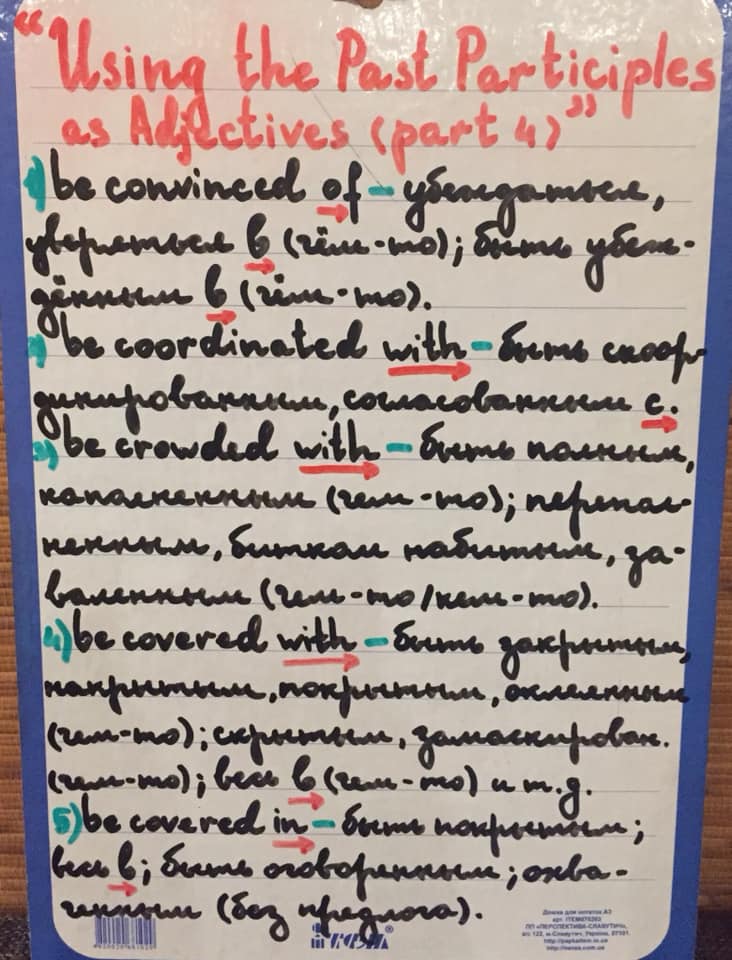 “Using the Past Participles
as Adjectives (part 4)”
1) be convinced of - убеждаться,
уверяться в (чём-то); быть убеж-
дённым в (чём-то).
2) be coordinated with - быть скоор-
динированным, согласованным с.
3) be crowded with - быть полным,
наполненным (чем-то); перепол-
ненным, битком набитым, за-
валенным (чем-то/кем-то).
4) be covered with - быть закрытым,
накрытым, покрытым, оклеенным
(чем-то); скрытым, замаскирован.
(чем-то); весь в (чем-то) и т.д.
5) be covered in - быть покрытым;
весь в; быть оговоренным; охва-
ченным (без предлога).
Дошка для нотаток А3
арт. ITEM070203
ПП «ПЕРСПЕКТИВА-СЛАВУТИЧ»,